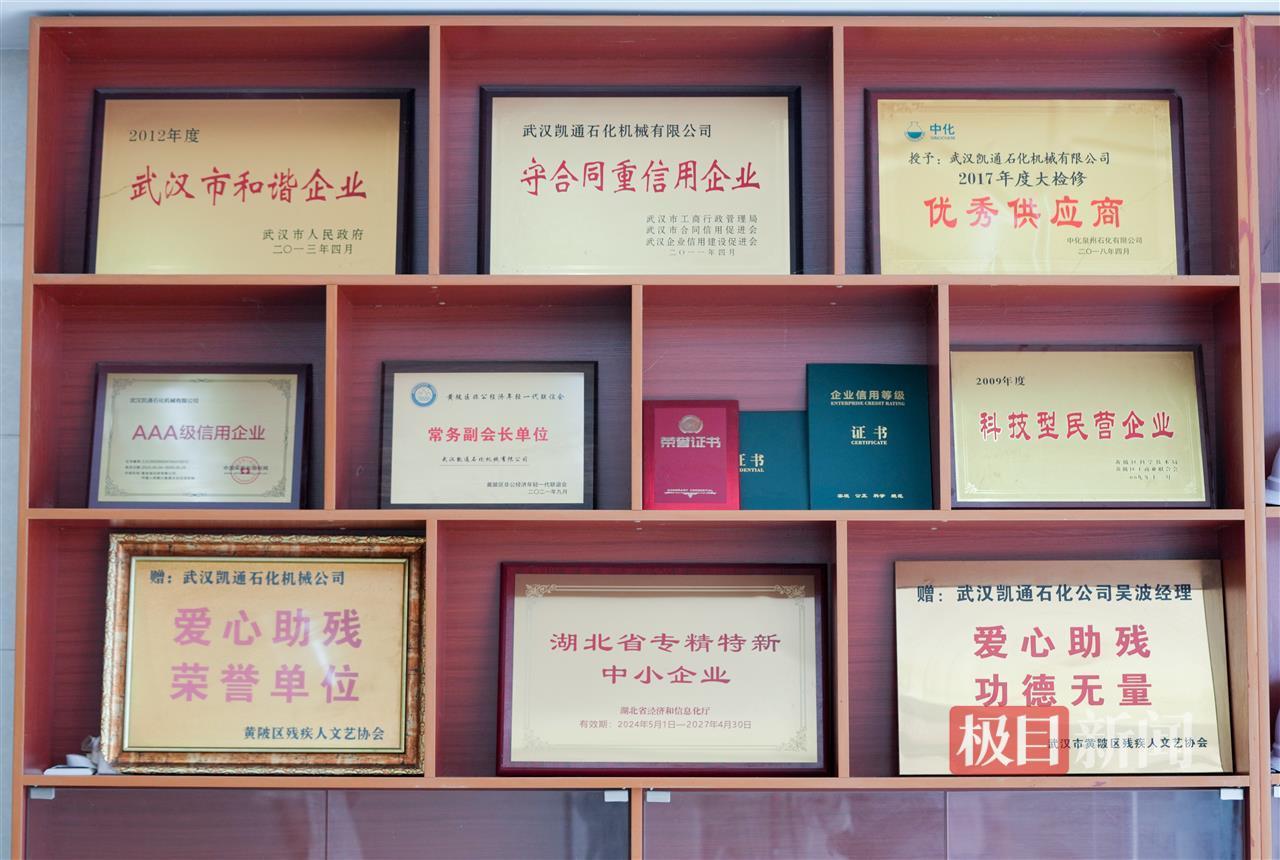 2012年度
武汉市和谐企业
武汉市人民政府
二〇一三年四月
武汉凯通石化机械有限公司
守合同重信用企业
武汉市工商行政管理局
武汉市合同信用促进会
武汉企业信用建设促进会
二〇一一年四月
中化
SINOCHEM
授予：武汉凯通石化机械有限公司
2017年度大检修
优秀供应商
中化泉州石化有限公司
二〇一八年四月
武汉凯通石化机械有限公司
AAA级信用企业
黄陂区非公经济年轻一代联谊会
常务副会长单位
武汉凯通石化机械有限公司
黄陂区非公经济年轻一代联谊会
二〇二一年九月
荣誉证书
证书
企业信用等级
ENTERPRISE CREDIT RATING
证书
CERTIFICATE
客观 公正 科学 规范
2009年度
科技型民营企业
黄陂区科学技术局
黄陂区工商业联合会
赠：武汉凯通石化机械公司
爱心助残
荣誉单位
黄陂区残疾人文艺协会
湖北省专精特新
中小企业
湖北省经济和信息化厅
有效期：2024年5月1日—2027年4月30日
赠：武汉凯通石化公司吴波经理
爱心助残
功德无量
武汉市黄陂区残疾人文艺协会
极目新闻